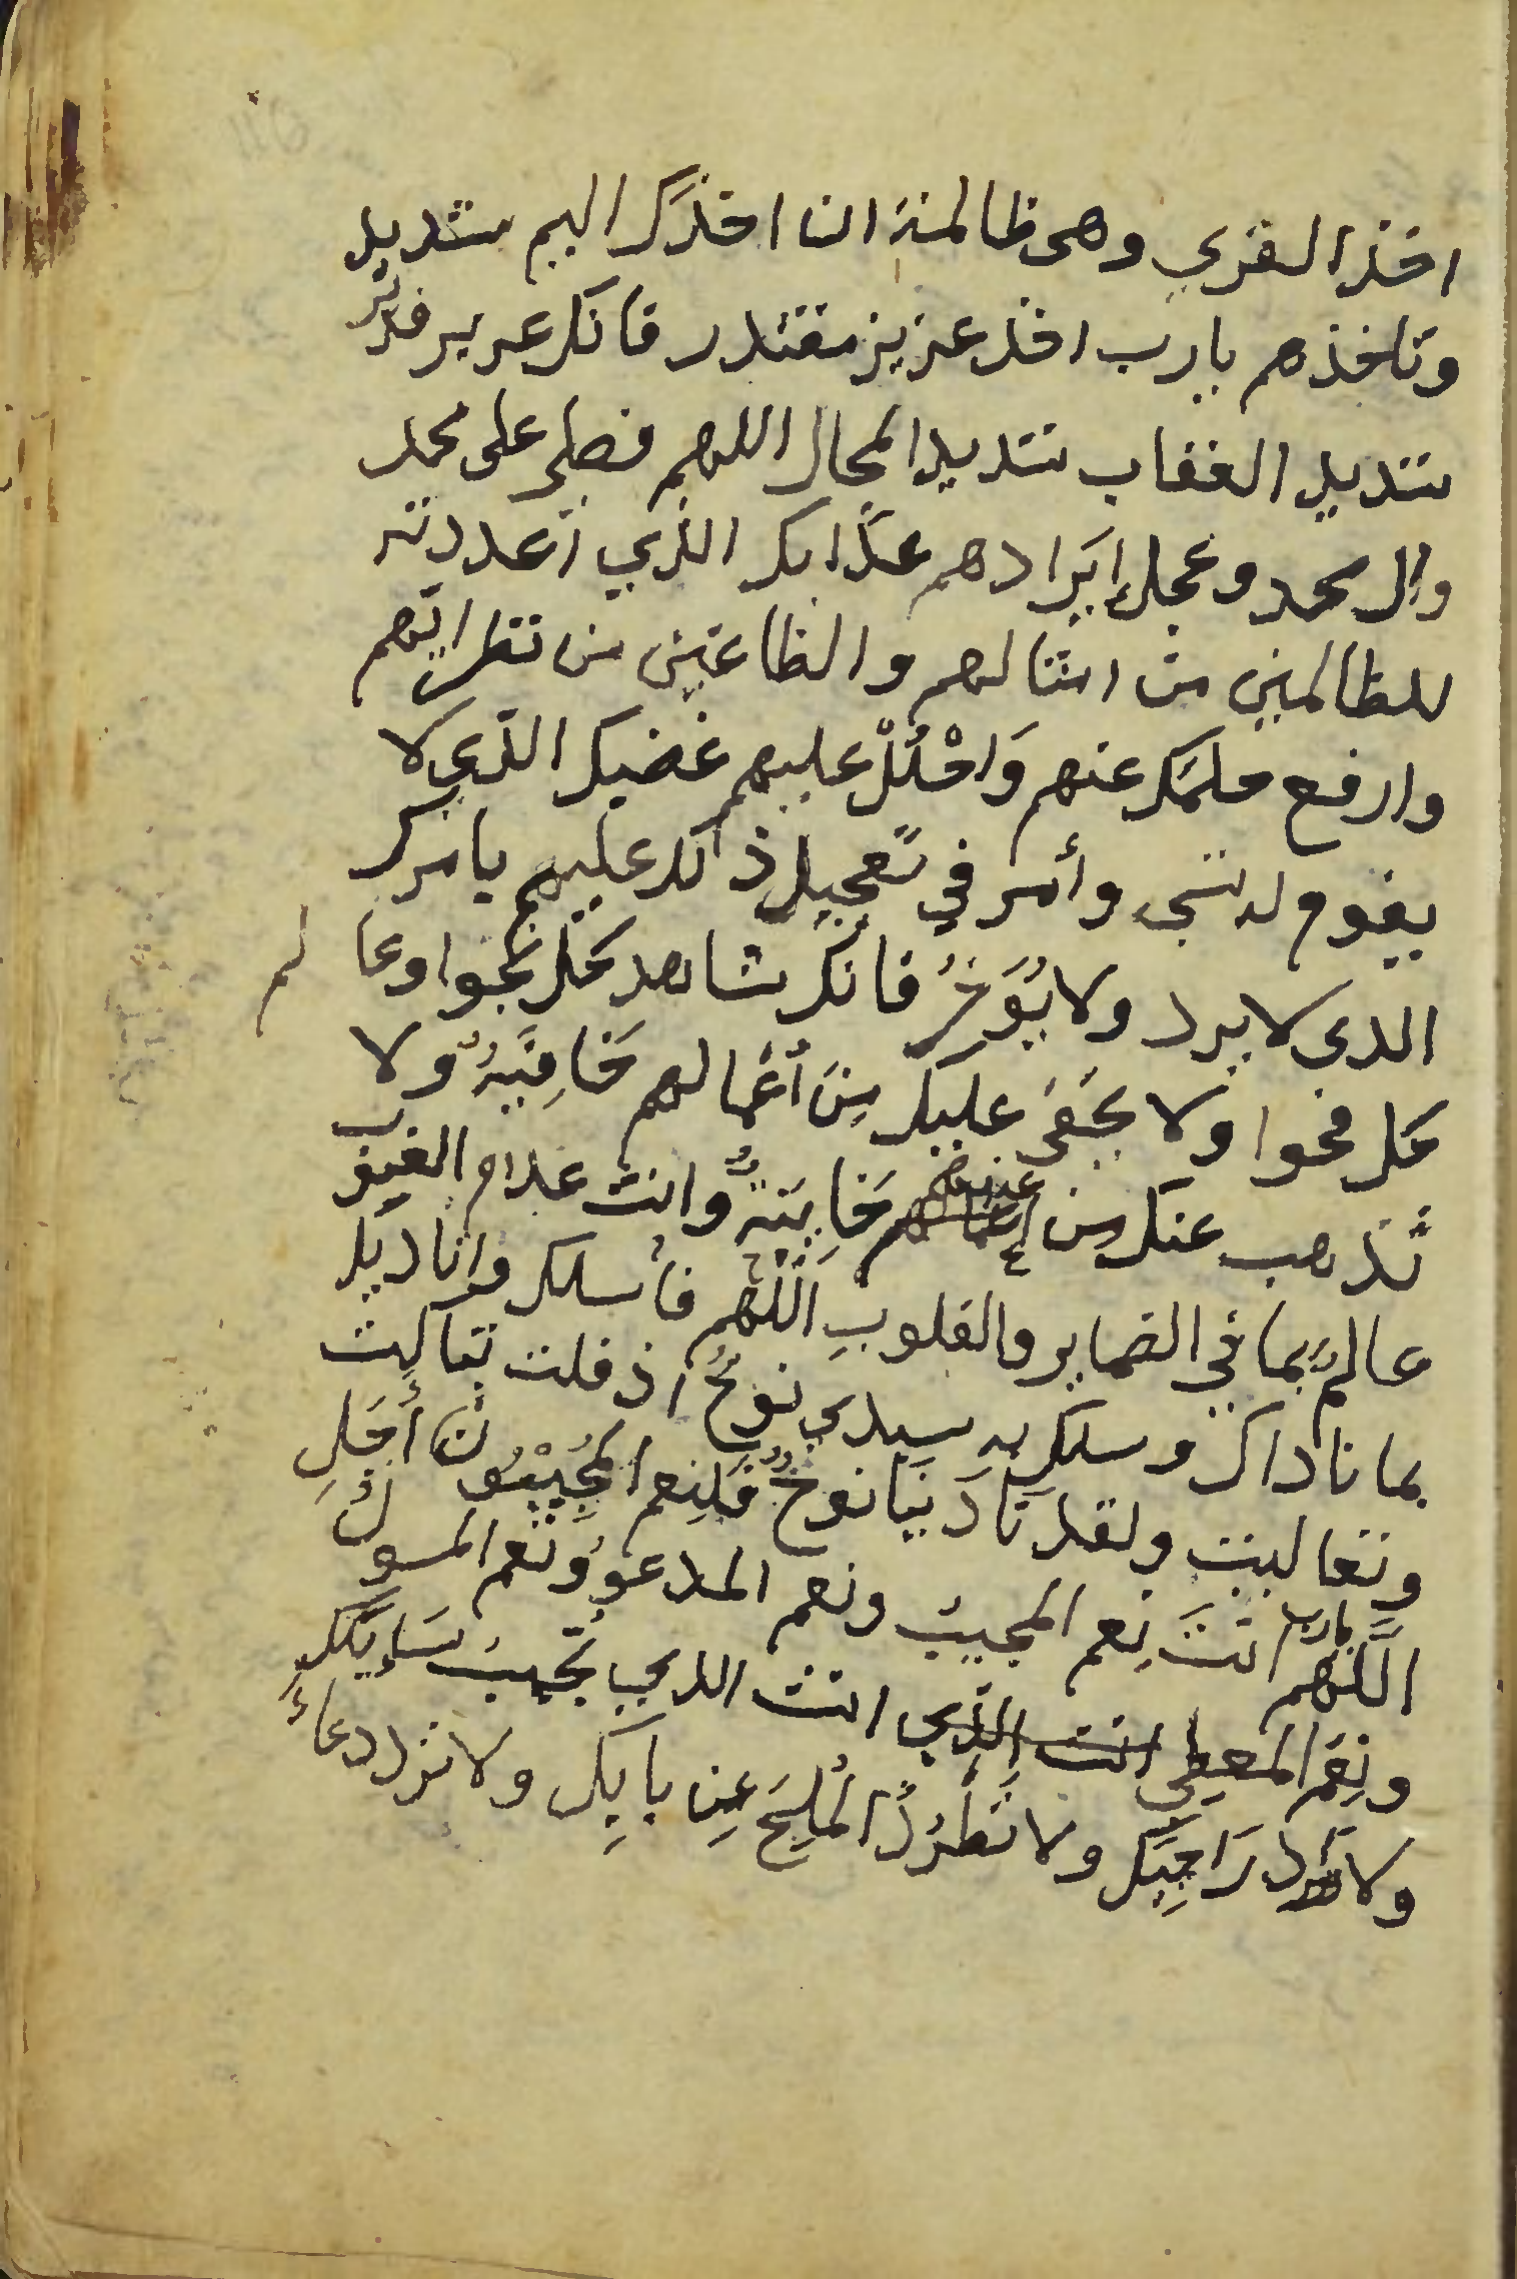 اخذ القري وهى ظالمة ان اخذك اليم شديد
وتاخذهم يارب اخذ عزيز مقتدر فانك عزيز قدير
شديد العقاب شديد المحال اللهم فصلى على محمد
وال محمد وعجل إيرادهم عذابك الذي أعددته
للظالمين من امثالهم والطاغين من نظرائهم
وارفع حلمك عنهم وَاحْلُلْ عليهم غضبك الذي لا
يقوم له شيء وأمر في تعجيل ذالك عليهم بامرك
الدى لا يرد ولا يُوَخرُ فانك شاهد كل نجوا وعالم
كل فحوا ولا يخفى عليك مِنَ أعمالهم خَافِيَةٌ ولا
تذهب عنك من خَايِنَةٌ وانت علام الغيوب
عالمٌ بما في الضماير والقلوبِ اللّهُم فأسلك واناديك
بما ناداك وسلك به سيدي نوحٌ اذ قلت تباركت
وتعاليت ولقد نادَينَا نوحٌ فَلنِعم المُجِيبُون أَجَلِ
اللَّهم يارب انتَ نِعم المجيبُ ونعم المدعوُ ونعم المسولُ
ونِعَم المعطي انت الذي انت الدي تُجيبُ سَإيَلَكَ
ولا تَرد رَاجِيَك ولا تَطْرُدُ المُلِحَ عِن بَابِكِ ولا ترد دعاءَ